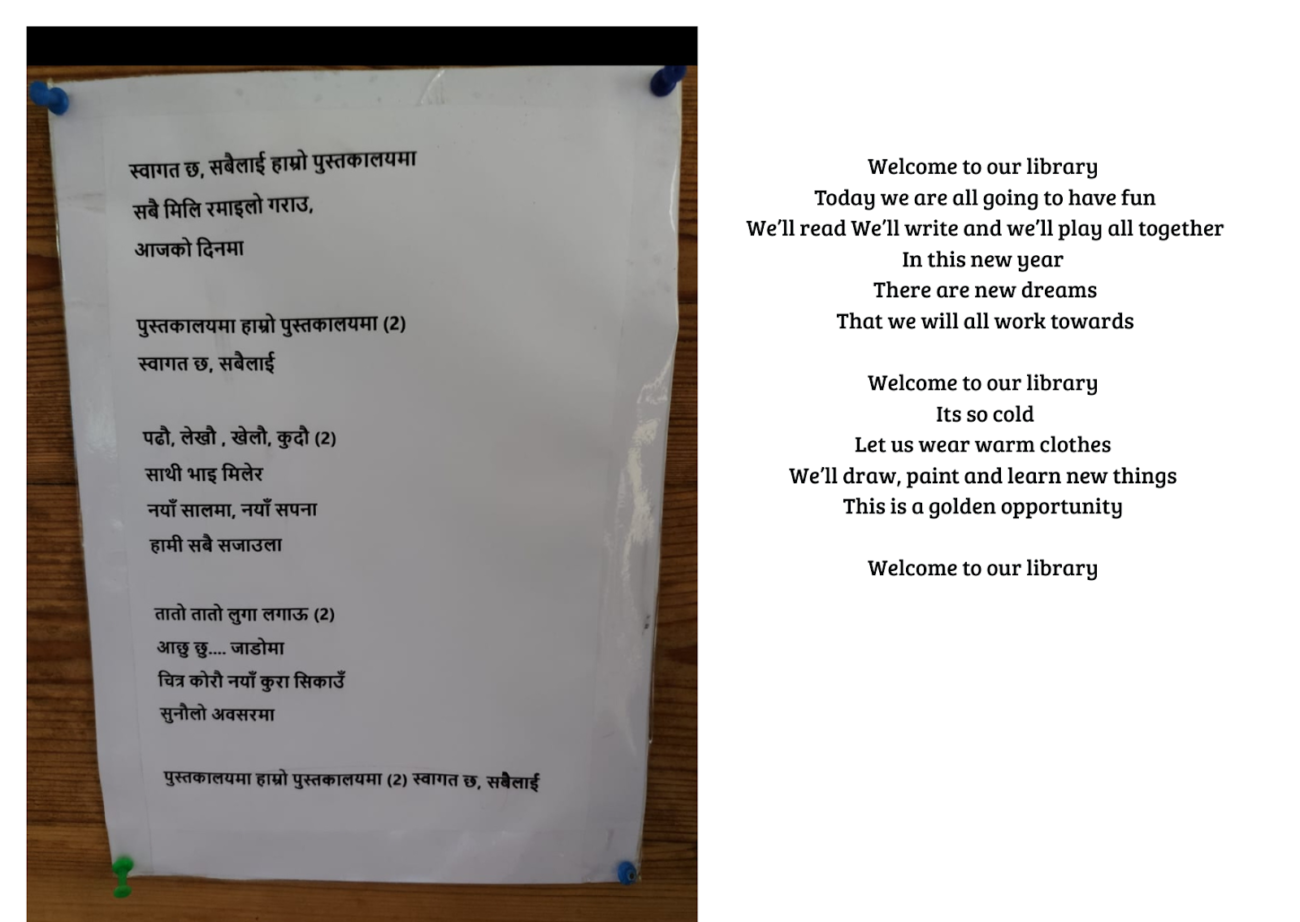 स्वागत छ, सबैलाई हाम्रो पुस्तकालयमा
सबै मिलि रमाइलो गराउ,
आजको दिनमा
पुस्तकालयमा हाम्रो पुस्तकालयमा (2)
स्वागत छ, सबैलाई
पढौ, लेखौ , खेलौ, कुदौ (2)
साथी भाइ मिलेर
नयाँ सालमा, नयाँ सपना
हामी सबै सजाउला
तातो तातो लुगा लगाऊ (2)
आछु छु.... जाडोमा
चित्र कोरौ नयाँ कुरा सिकाउँ
सुनौलो अवसरमा
पुस्तकालयमा हाम्रो पुस्तकालयमा (2) स्वागत छ, सबैलाई
Welcome to our library
Today we are all going to have fun
We'll read We'll write and we'll play all together
In this new year
There are new dreams
That we will all work towards
Welcome to our library
Its so cold
Let us wear warm clothes
We'll draw, paint and learn new things
This is a golden opportunity
Welcome to our library